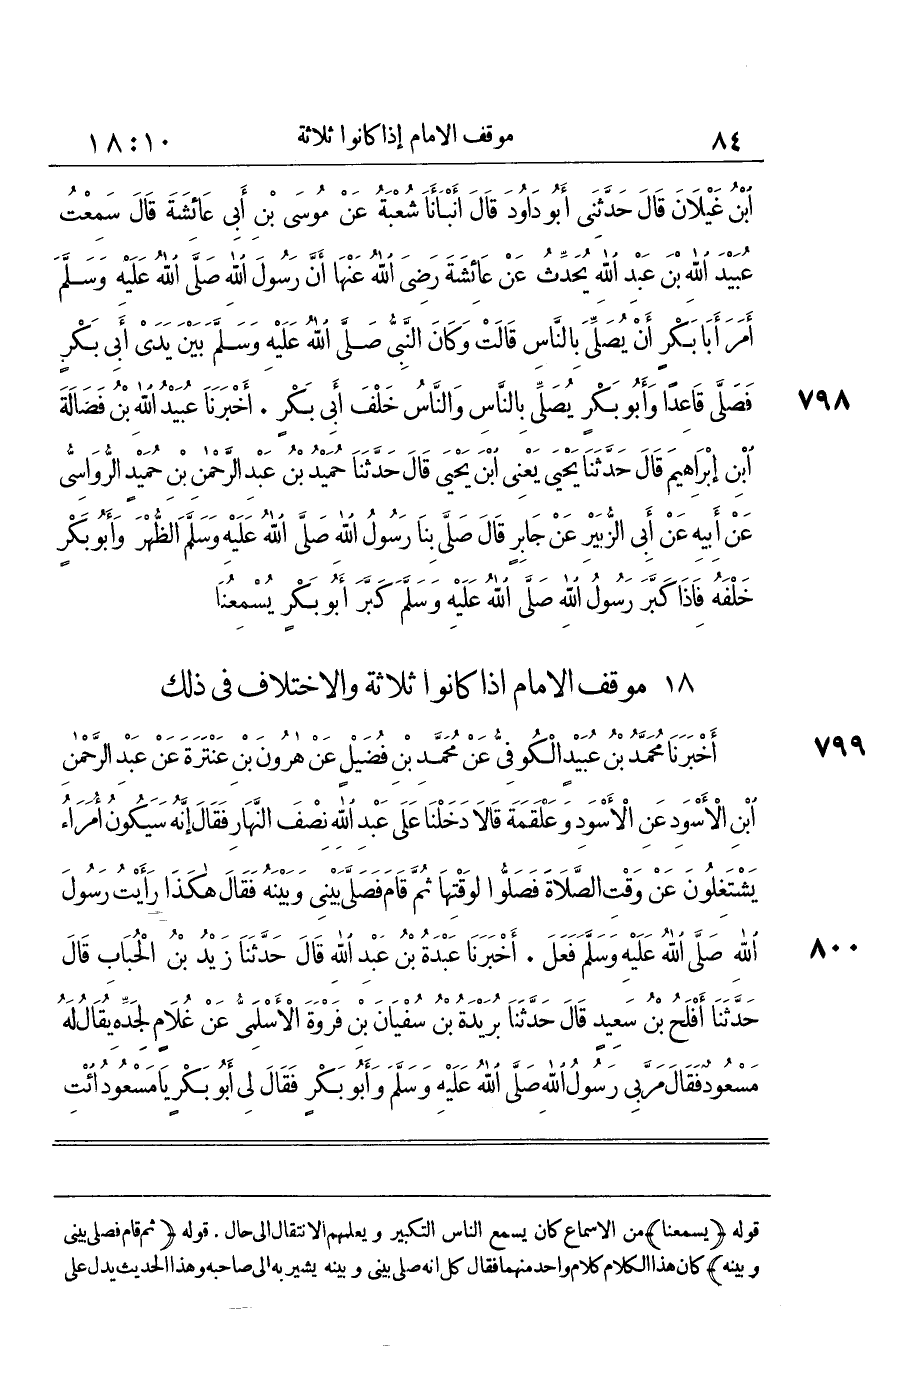 ٨٤ موقف الامام إذا كانوا ثلاثة ١٠ : ١٨
ابْنُ غَيْلَانَ قَالَ حَدَّثَنِى أَبُو دَاوُدَ قَالَ أَنْبَأَنَا شُعْبَةُ عَنْ مُوسَى بْنِ أَبِى عَائِشَةَ قَالَ سَمِعْتُ
عُبَيْدَ اللهِ بْنَ عَبْدِ اللهِ يُحَدِّثُ عَنْ عَائِشَةَ رَضِىَ اللهُ عَنْهَا أَنَّ رَسُولَ اللهِ صَلَّى اللهُ عَلَيْهِ وَسَلَّمَ
أَمَرَ أَبَا بَكْرٍ أَنْ يُصَلِّىَ بِالنَّاسِ قَالَتْ وَكَانَ النَّبِىُّ صَلَّى اللهُ عَلَيْهِ وَسَلَّمَ بَيْنَ يَدَىْ أَبِى بَكْرٍ
فَصَلَّى قَاعِدًا وَأَبُو بَكْرٍ يُصَلِّى بِالنَّاسِ وَالنَّاسُ خَلْفَ أَبِى بَكْرٍ . أَخْبَرَنَا عُبَيْدُ اللهِ بْنُ فَضَالَةَ ٧٩٨
ابْنِ إِبْرَاهِيمَ قَالَ حَدَّثَنَا يَحْيَى يَعْنِى ابْنَ يَحْيَى قَالَ حَدَّثَنَا حُمَيْدُ بْنُ عَبْدِ الرَّحْمٰنِ بْنِ حُمَيْدٍ الرُّوَاسِىُّ
عَنْ أَبِيهِ عَنْ أَبِى الزُّبَيْرِ عَنْ جَابِرٍ قَالَ صَلَّى بِنَا رَسُولُ اللهِ صَلَّى اللهُ عَلَيْهِ وَسَلَّمَ الظُّهْرَ وَأَبُو بَكْرٍ
خَلْفَهُ فَاذَا كَبَّرَ رَسُولُ اللهِ صَلَّى اللهُ عَلَيْهِ وَسَلَّمَ كَبَّرَ أَبُو بَكْرٍ يُسْمِعُنَا
١٨ موقف الامام اذا كانوا ثلاثة والاختلاف فى ذلك
أَخْبَرَنَا مُحَمَّدُ بْنُ عُبَيْدٍ الْكُوفِىُّ عَنْ مُحَمَّدِ بْنِ فُضَيْلٍ عَنْ هٰرُونَ بْنِ عَنْتَرَةَ عَنْ عَبْدِ الرَّحْمٰنِ ٧٩٩
ابْنِ الْأَسْوَدِ عَنِ الْأَسْوَدِ وَعَلْقَمَةَ قَالَا دَخَلْنَا عَلَى عَبْدِ اللهِ نِصْفَ النَّهَارِ فَقَالَ إِنَّهُ سَيَكُونُ أُمَرَاءُ
يَشْتَغِلُونَ عَنْ وَقْتِ الصَّلَاةِ فَصَلُّوا لِوَقْتِهَا ثُمَّ قَامَ فَصَلَّى بَيْنِى وَبَيْنَهُ فَقَالَ هٰكَذَا رَأَيْتُ رَسُولَ
اللهِ صَلَّى اللهُ عَلَيْهِ وَسَلَّمَ فَعَلَ . أَخْبَرَنَا عَبْدَةُ بْنُ عَبْدِ اللهِ قَالَ حَدَّثَنَا زَيْدُ بْنُ الْحُبَابِ قَالَ ٨٠٠
حَدَّثَنَا أَفْلَحُ بْنُ سَعِيدٍ قَالَ حَدَّثَنَا بُرَيْدَةُ بْنُ سُفْيَانَ بْنِ فَرْوَةَ الْأَسْلَمِىُّ عَنْ غُلَامٍ لِجَدِّهِ يُقَالُ لَهُ
مَسْعُودٌ فَقَالَ مَرَّ بِى رَسُولُ اللهِ صَلَّى اللهُ عَلَيْهِ وَسَلَّمَ وَأَبُو بَكْرٍ فَقَالَ لِى أَبُو بَكْرٍ يَا مَسْعُودُ ائْتِ
قوله ﴿يسمعنا﴾ من الاسماع كان يسمع الناس التكبير و يعلمهم الانتقال الى حال . قوله ﴿ ثم قام فصلى بينى
و بينه ﴾ كان هذا الكلام كلام واحد منهما فقال كل انه صلى بينى و بينه يشير به الى صاحبه وهذا الحديث يدل على